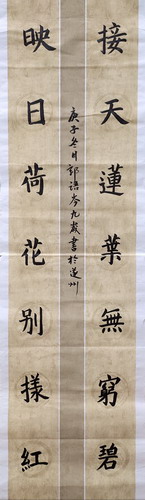 接天蓮葉無窮碧
映日荷花别樣紅
庚子冬月郭語岑九歲書於道州